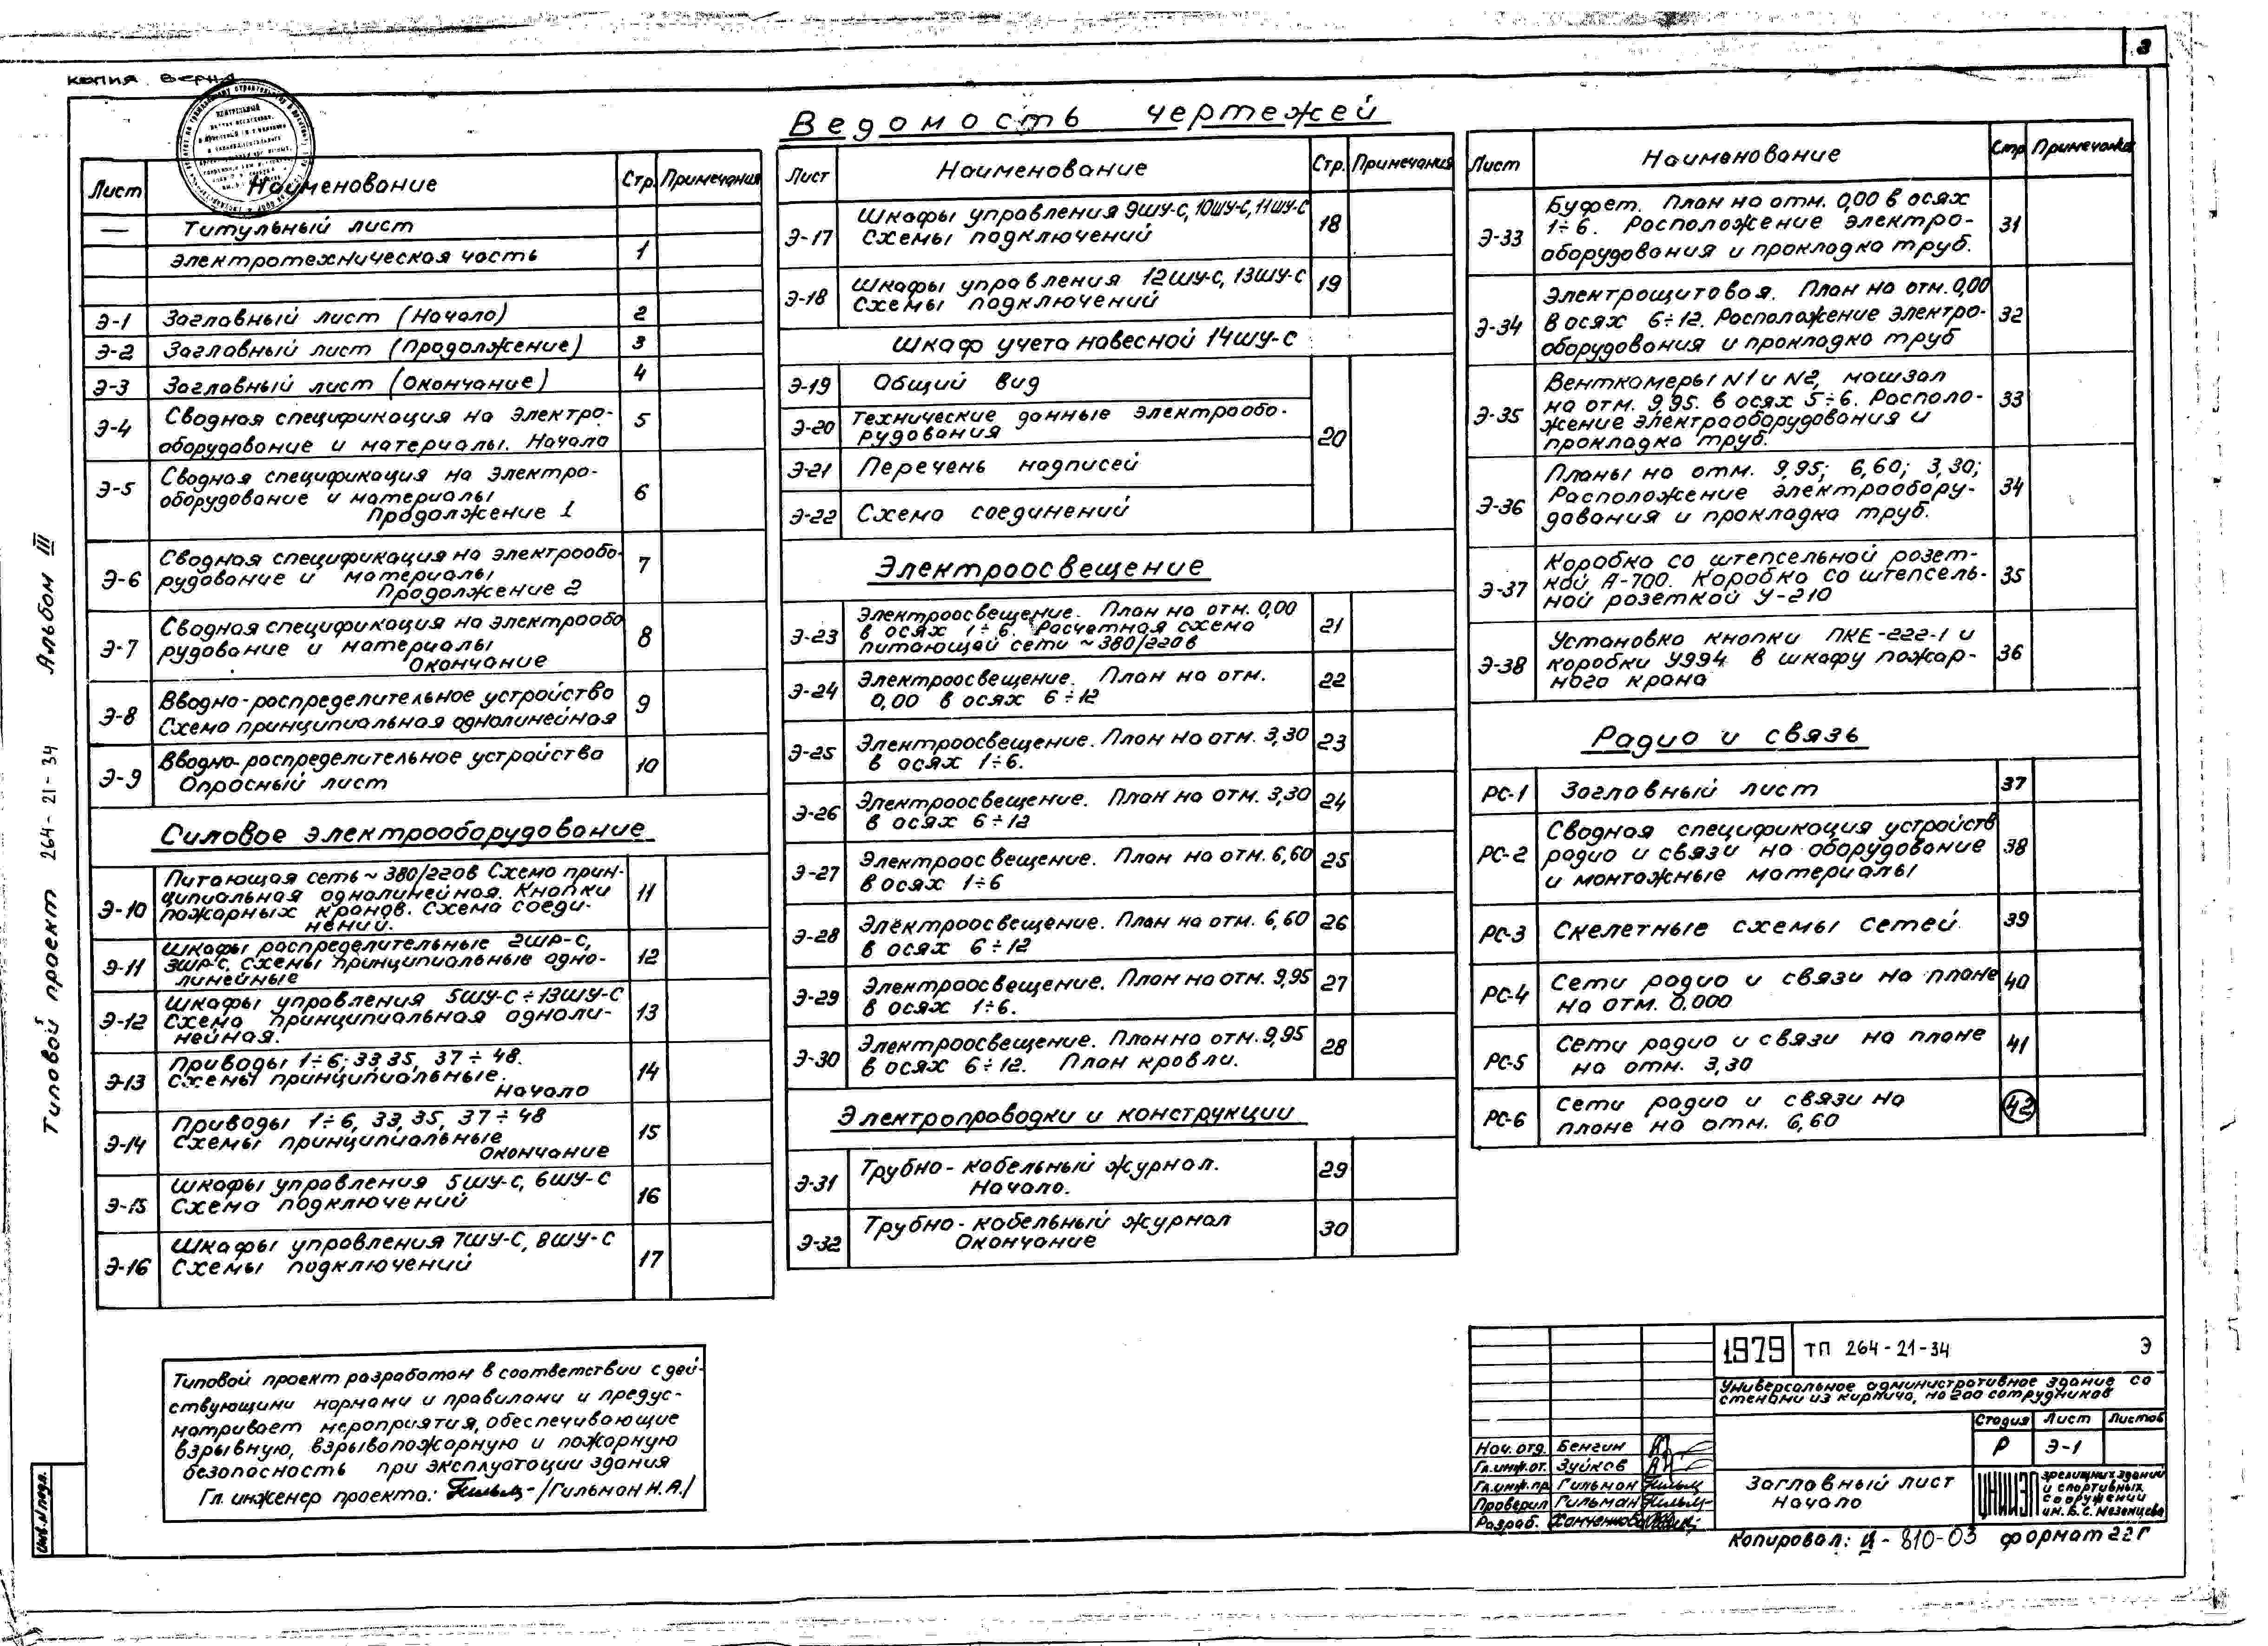 3
копия верна
Ведомость чертежей
Лист Наименование Стр. Примечания
— Титульный лист
Электротехническая часть 1
Э-1 Заглавный лист (Начало) 2
Э-2 Заглавный лист (Продолжение) 3
Э-3 Заглавный лист (Окончание) 4
Э-4 Сводная спецификация на электро- 5
оборудование и материалы. Начало
Э-5 Сводная спецификация на электро- 6
оборудование и материалы
Продолжение 1
Э-6 Сводная спецификация на электрообо- 7
рудование и материалы
Продолжение 2
Э-7 Сводная спецификация на электрообо 8
рудование и материалы
Окончание
Э-8 Вводно-распределительное устройство 9
Схема принципиальная однолинейная
Э-9 Вводно-распределительное устройства 10
Опросный лист
Силовое электрооборудование
Э-10 Питающая сеть ~ 380/220в Схема прин- 11
ципиальная однолинейная. Кнопки
пожарных кранов. Схема соеди-
нений.
Э-11 Шкафы распределительные 2ШР-С, 12
3ШР-С. Схемы принципиальные одно-
линейные
Э-12 Шкафы управления 5ШУ-С÷13ШУ-С 13
Схема принципиальная одноли-
нейная.
Э-13 Приводы 1÷6; 33 35, 37÷48. 14
Схемы принципиальные.
Начало
Э-14 Приводы 1÷6, 33, 35, 37÷48 15
Схемы принципиальные
Окончание
Э-15 Шкафы управления 5ШУ-С, 6ШУ-С 16
Схема подключений
Э-16 Шкафы управления 7ШУ-С, 8ШУ-С 17
Схемы подключений
Лист Наименование Стр. Примечания
Э-17 Шкафы управления 9ШУ-С, 10ШУ-С, 11ШУ-С 18
Схемы подключений
Э-18 Шкафы управления 12ШУ-С, 13ШУ-С 19
Схемы подключений
Шкаф учета навесной 14ШУ-С
Э-19 Общий вид
Э-20 Технические данные электрообо-
рудования 20
Э-21 Перечень надписей
Э-22 Схема соединений
Электроосвещение
Э-23 Электроосвещение. План на отм. 0,00 21
в осях 1÷6. Расчетная схема
питающей сети ~ 380/220в
Э-24 Электроосвещение. План на отм. 22
0,00 в осях 6÷12
Э-25 Электроосвещение. План на отм. 3,30 23
в осях 1÷6.
Э-26 Электроосвещение. План на отм. 3,30 24
в осях 6÷12
Э-27 Электроосвещение. План на отм. 6,60 25
в осях 1÷6
Э-28 Электроосвещение. План на отм. 6,60 26
в осях 6÷12
Э-29 Электроосвещение. План на отм. 9,95 27
в осях 1÷6.
Э-30 Электроосвещение. План на отм. 9,95 28
в осях 6÷12. План кровли.
Электропроводки и конструкции
Э-31 Трубно-кабельный журнал. 29
Начало.
Э-32 Трубно-кабельный журнал 30
Окончание
Лист Наименование Стр Примечания
Э-33 Буфет. План на отм. 0,00 в осях 31
1÷6. Расположение электро-
оборудования и прокладка труб.
Э-34 Электрощитовая. План на отм. 0,00 32
в осях 6÷12. Расположение электро-
оборудования и прокладка труб
Э-35 Венткамеры N1 и N2, машзал 33
на отм. 9,95. в осях 5÷6. Располо-
жение электрооборудования и
прокладка труб.
Э-36 Планы на отм. 9,95; 6,60; 3,30; 34
Расположение электрообору-
дования и прокладка труб.
Э-37 Коробка со штепсельной розет- 35
кой А-700. Коробка со штепсель-
ной розеткой У-210
Э-38 Установка кнопки ПКЕ-222-1 и 36
коробки У994 в шкафу пожар-
ного крана
Радио и связь
РС-1 Заглавный лист 37
РС-2 Сводная спецификация устройств 38
радио и связи на оборудование
и монтажные материалы
РС-3 Скелетные схемы сетей 39
РС-4 Сети радио и связи на плане 40
на отм. 0.000
РС-5 Сети радио и связи на плане 41
на отм. 3,30
РС-6 Сети радио и связи на 42
плане на отм. 6,60
Типовой проект 264-21-34 Альбом III
Инв.№подл.
Типовой проект разработан в соответствии с дей-
ствующими нормами и правилами и предус-
матривает мероприятия, обеспечивающие
взрывную, взрывопожарную и пожарную
безопасность при эксплуатации здания
Гл. инженер проекта: /Гильман Н.А./
1979 ТП 264-21-34 Э
Универсальное административное здание со
стенами из кирпича, на 200 сотрудников
Стадия Лист Листов
Р Э-1
Нач. отд. Бенгин
Гл.инж.от. Зуйков
Гл.инж.пр Гильман
Проверил Гильман
Разраб. Ханченкова
Заглавный лист
Начало
ЦНИИЭП
зрелищных зданий
и спортивных
сооружений
им. Б.С. Мезенцева
Копировал: Ц-810-03 формат 22Г